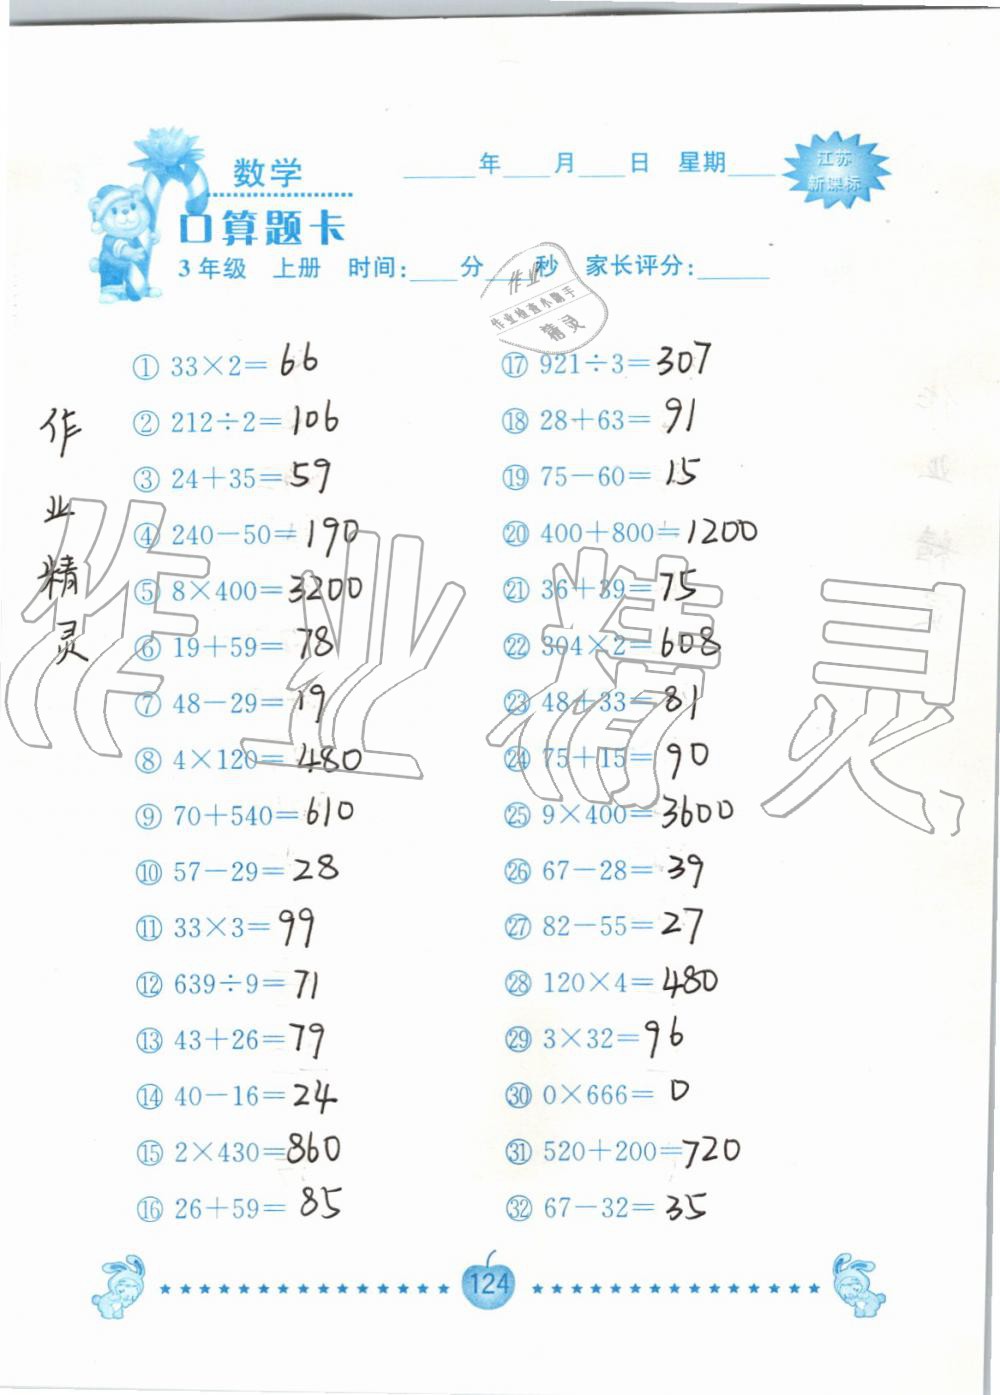 数学
口算题卡
____年____月____日 星期____
江苏
新课标
3年级 上册 时间:____分____秒 家长评分:____
作业
作业检查小助手
精灵
作业精灵
作业精灵
① 33×2=66
② 212÷2=106
③ 24+35=59
④ 240-50=190
⑤ 8×400=3200
⑥ 19+59=78
⑦ 48-29=19
⑧ 4×120=480
⑨ 70+540=610
⑩ 57-29=28
⑪ 33×3=99
⑫ 639÷9=71
⑬ 43+26=79
⑭ 40-16=24
⑮ 2×430=860
⑯ 26+59=85
⑰ 921÷3=307
⑱ 28+63=91
⑲ 75-60=15
⑳ 400+800=1200
㉑ 36+39=75
㉒ 304×2=608
㉓ 48+33=81
㉔ 75+15=90
㉕ 9×400=3600
㉖ 67-28=39
㉗ 82-55=27
㉘ 120×4=480
㉙ 3×32=96
㉚ 0×666=0
㉛ 520+200=720
㉜ 67-32=35
124